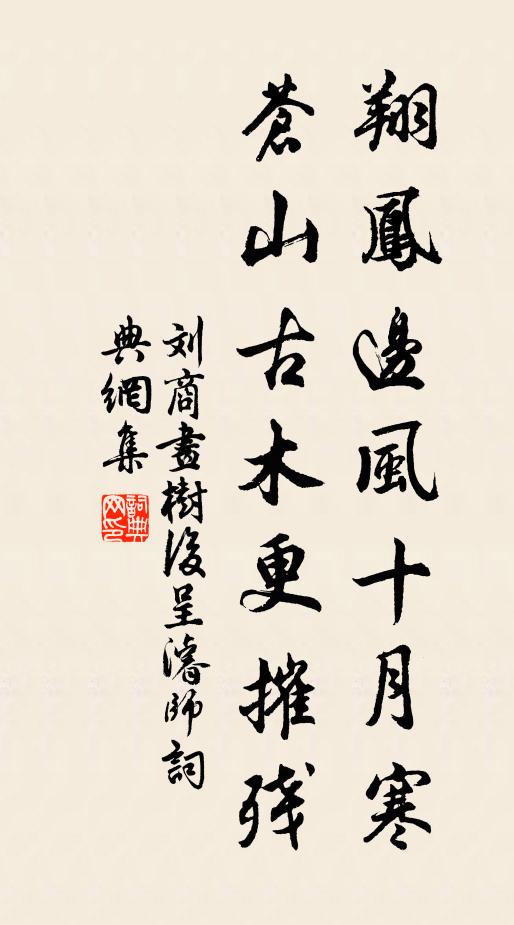 翔鳳邊風十月寒
蒼山古木更摧残
刘商畫樹後呈濬師詞
典網集
詞典
网印